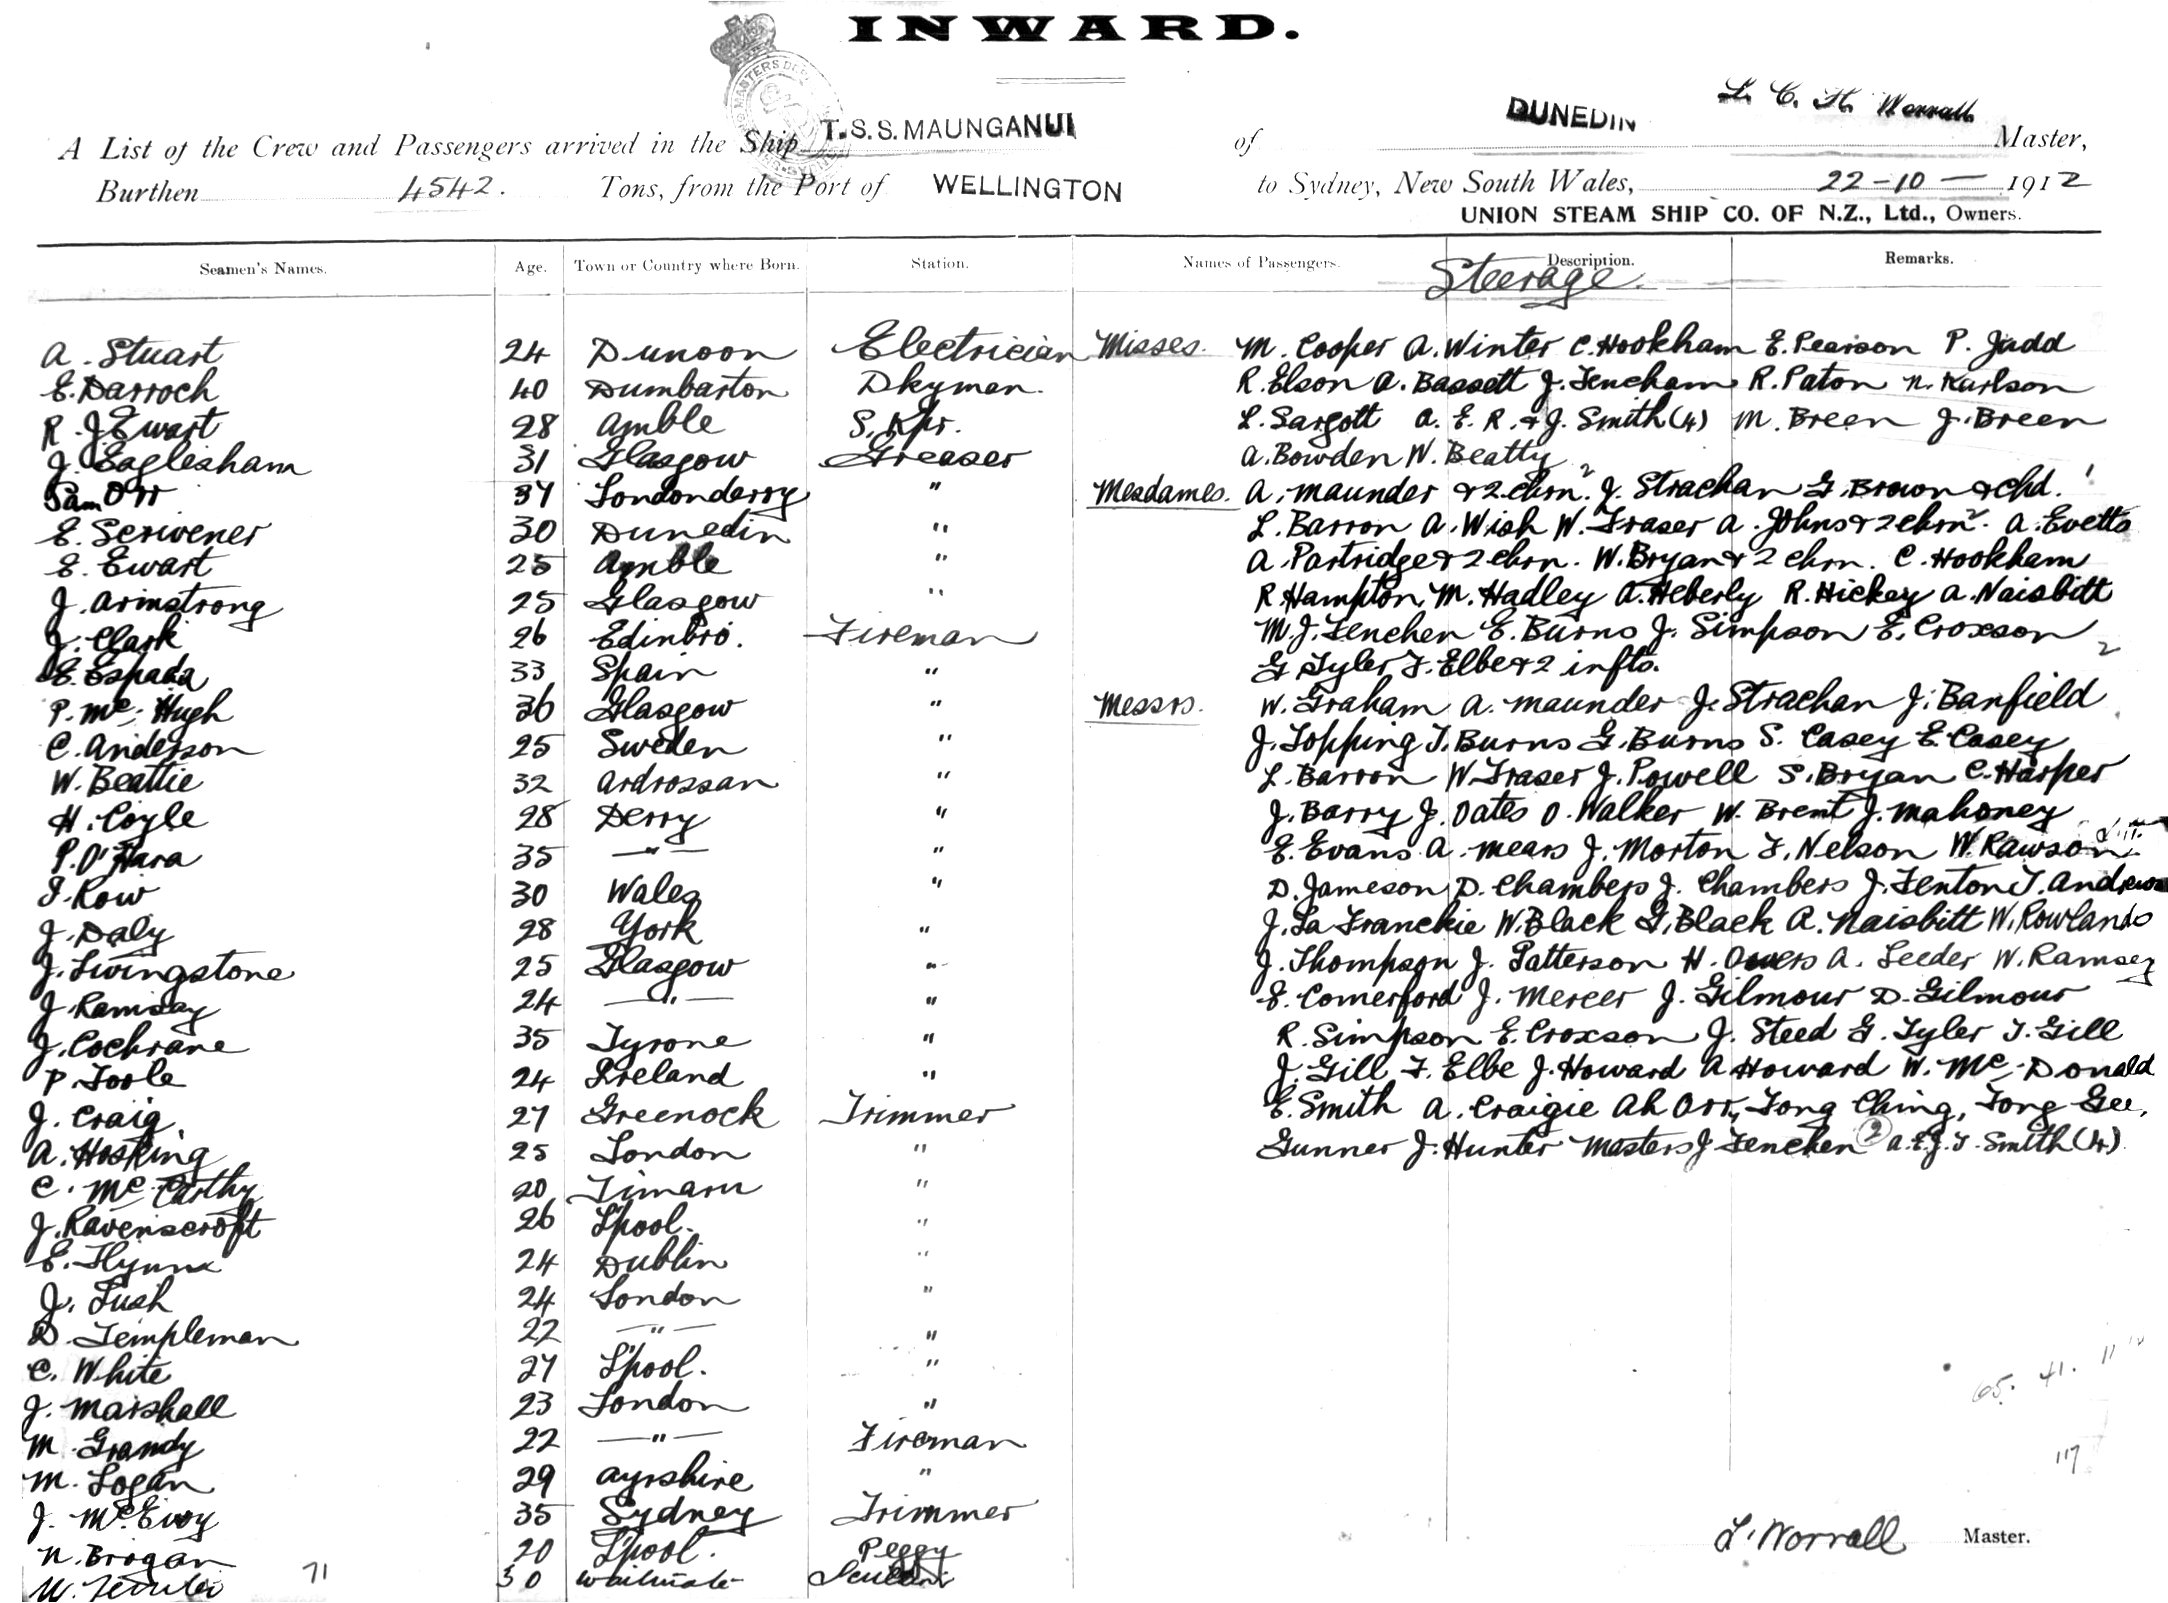 INWARD.
L. C. H. Worrall
A List of the Crew and Passengers arrived in the Ship T.S.S. MAUNGANUI of DUNEDIN Master,
Burthen 4542. Tons, from the Port of WELLINGTON to Sydney, New South Wales, 22-10- 1912
UNION STEAM SHIP CO. OF N.Z., Ltd., Owners.
Seamen's Names. Age. Town or Country where Born. Station. Names of Passengers. Description. Remarks.
Steerage.
A. Stuart 24 Dunoon Electrician
E. Darroch 40 Dumbarton Dkyman.
R. J. Ewart 28 Amble S. Kpr.
J. Eaglesham 31 Glasgow Greaser
Sam Orr 37 Londonderry "
E. Scrivener 30 Dunedin "
E. Ewart 25 Amble "
J. Armstrong 25 Glasgow "
J. Clark 26 Edinbro. Fireman
E. Espada 33 Spain "
P. Mc. Hugh 36 Glasgow "
C. Anderson 25 Sweden "
W. Beattie 32 Ardrossan "
H. Coyle 28 Derry "
P. O'Hara 35 —"— "
J. Row 30 Wales "
J. Daly 28 York "
J. Livingstone 25 Glasgow "
J. Ramsay 24 —"— "
J. Cochrane 35 Tyrone "
P. Toole 24 Ireland "
J. Craig 27 Greenock Trimmer
A. Hosking 25 London "
C. Mc Carthy 20 Timaru "
J. Ravenscroft 26 L'pool. "
E. Flynn 24 Dublin "
J. Lush 24 London "
D. Templeman 22 —"— "
C. White 27 L'pool. "
J. Marshall 23 London "
M. Grandy 22 —"— Fireman
M. Logan 29 Ayrshire "
J. Mc. Evoy 35 Sydney Trimmer
N. Brogan 20 L'pool. Peggy
71 30 Waimate
Misses. M. Cooper A. Winter C. Hookham E. Pearson P. Judd
R. Elson A. Bassett J. Fencham R. Paton N. Karlson
L. Sargott A. E. R. & J. Smith (4) M. Breen J. Breen
A. Bowden W. Beatty
Mesdames. A. Maunder & 2 chrn. 2 J. Strachan G. Brown & chd. 1
L. Barron A. Wish W. Fraser A. Johns & 2 chrn 2. A. Evetts
A. Partridge & 2 chrn. W. Bryan & 2 chrn. C. Hookham
R. Hampton, M. Hadley A. Heberly R. Hickey A. Naisbitt
M. J. Fenchen E. Burns J. Simpson E. Croxson
G. Tyler F. Elbe & 2 infts. 2
Messrs. W. Graham A. Maunder J. Strachan J. Banfield
J. Topping T. Burns G. Burns S. Casey E. Casey
L. Barron W. Fraser J. Powell S. Bryan C. Harper
J. Barry J. Oates O. Walker W. Brent J. Mahoney
E. Evans A. Mears J. Morton F. Nelson W. Rawson
D. Jameson D. Chambers J. Chambers J. Fenton T. Andrews
J. La Franchie W. Black G. Black A. Naisbitt W. Rowlands
J. Thompson J. Patterson H. Owers A. Leeder W. Ramsey
E. Comerford J. Mercer J. Gilmour D. Gilmour
R. Simpson E. Croxson J. Steed G. Tyler T. Gill
J. Gill F. Elbe J. Howard A Howard W. Mc. Donald
E. Smith A. Craigie Ah Orr, Tong Ching, Tong Gee,
Gunner J. Hunter Masters J Fenchen (2) A. E. J. T. Smith (4).
65. 41. 11
117
L. Worrall Master.